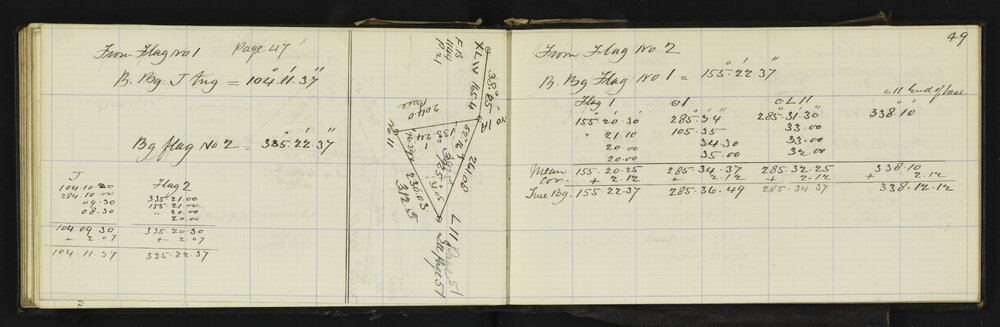 From Flag No 1 Page 47
B. Bg J Trig = 104°.11'.37"
Bg flag No 2 = 335°.22'.37"
J Flag 2
104.10.20
284.10.00 335.21.00
09.30 155.21.00
08.30 " 20.00
20.00
104.09.30 335.20.30
+ 2.07 + 2.07
104.11.37 335.22.37
XLW 1654
F.B.
1044
10.21
38°.25'
No 1
2040
No 11
261.00
230.03
312.5
L III
Page 51
49
From Flag No 2
B. Bg Flag No 1 = 155°.22'.37"
Flag 1 c1 CL 11 c11 End of base
155°.20'.30" 285°.34" 285°.31'.30" 338°.10'
" 21.10 105.35 33.00
20.00 34.30 33.00
20.00 35.00 32.00
Mean 155.20.25 285.34.37 285.32.25 338.10
Cor. + 2.12 + 2.12 + 2.12 + 2.12
True Bg. 155.22.37 285.36.49 285.34.37 338.12.12